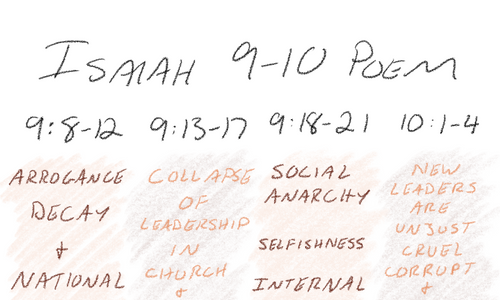 ISAIAH 9-10 POEM
9:8-12 9:13-17 9:18-21 10:1-4
ARROGANCE
DECAY
+
NATIONAL
COLLAPSE
OF
LEADERSHIP
IN
CHURCH
+
SOCIAL
ANARCHY
SELFISHNESS
INTERNAL
NEW
LEADERS
ARE
UNJUST
CRUEL
CORRUPT
+